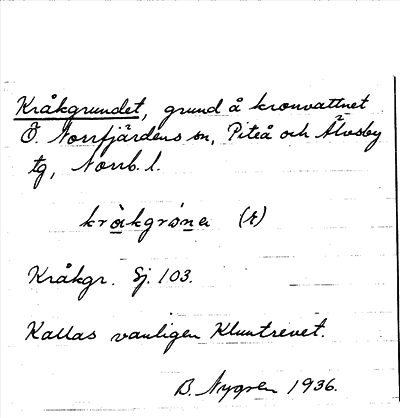 Kråkgrundet, grund å kronvattnet
Ö. Norrfjärdens sn, Piteå och Älvsby
tg, Norrb. l.
kråkgrona (t)
Kråkgr. Sj. 103.
Kallas vanligen Kluntrevet.
B. Nygren 1936.